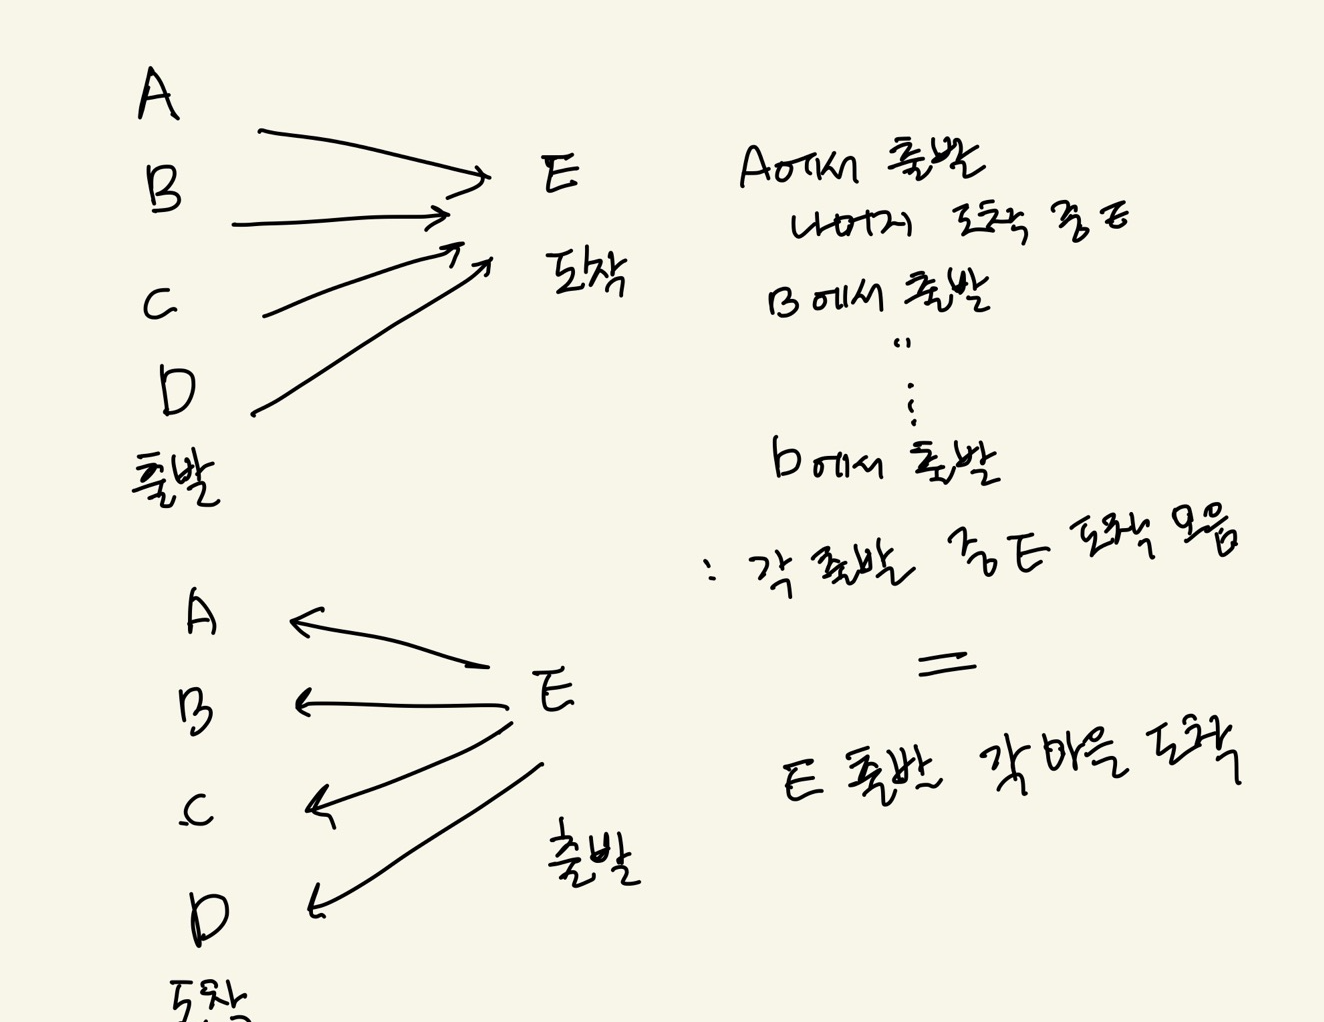 A
B
C
D
출발
E
도착
A에서 출발
나머지 도착 중 E
B에서 출발
〃
⋮
D에서 출발
: 각 출발 중 E 도착 모음
=
E 출발 각 마을 도착
A
B
C
D
도착
E
출발